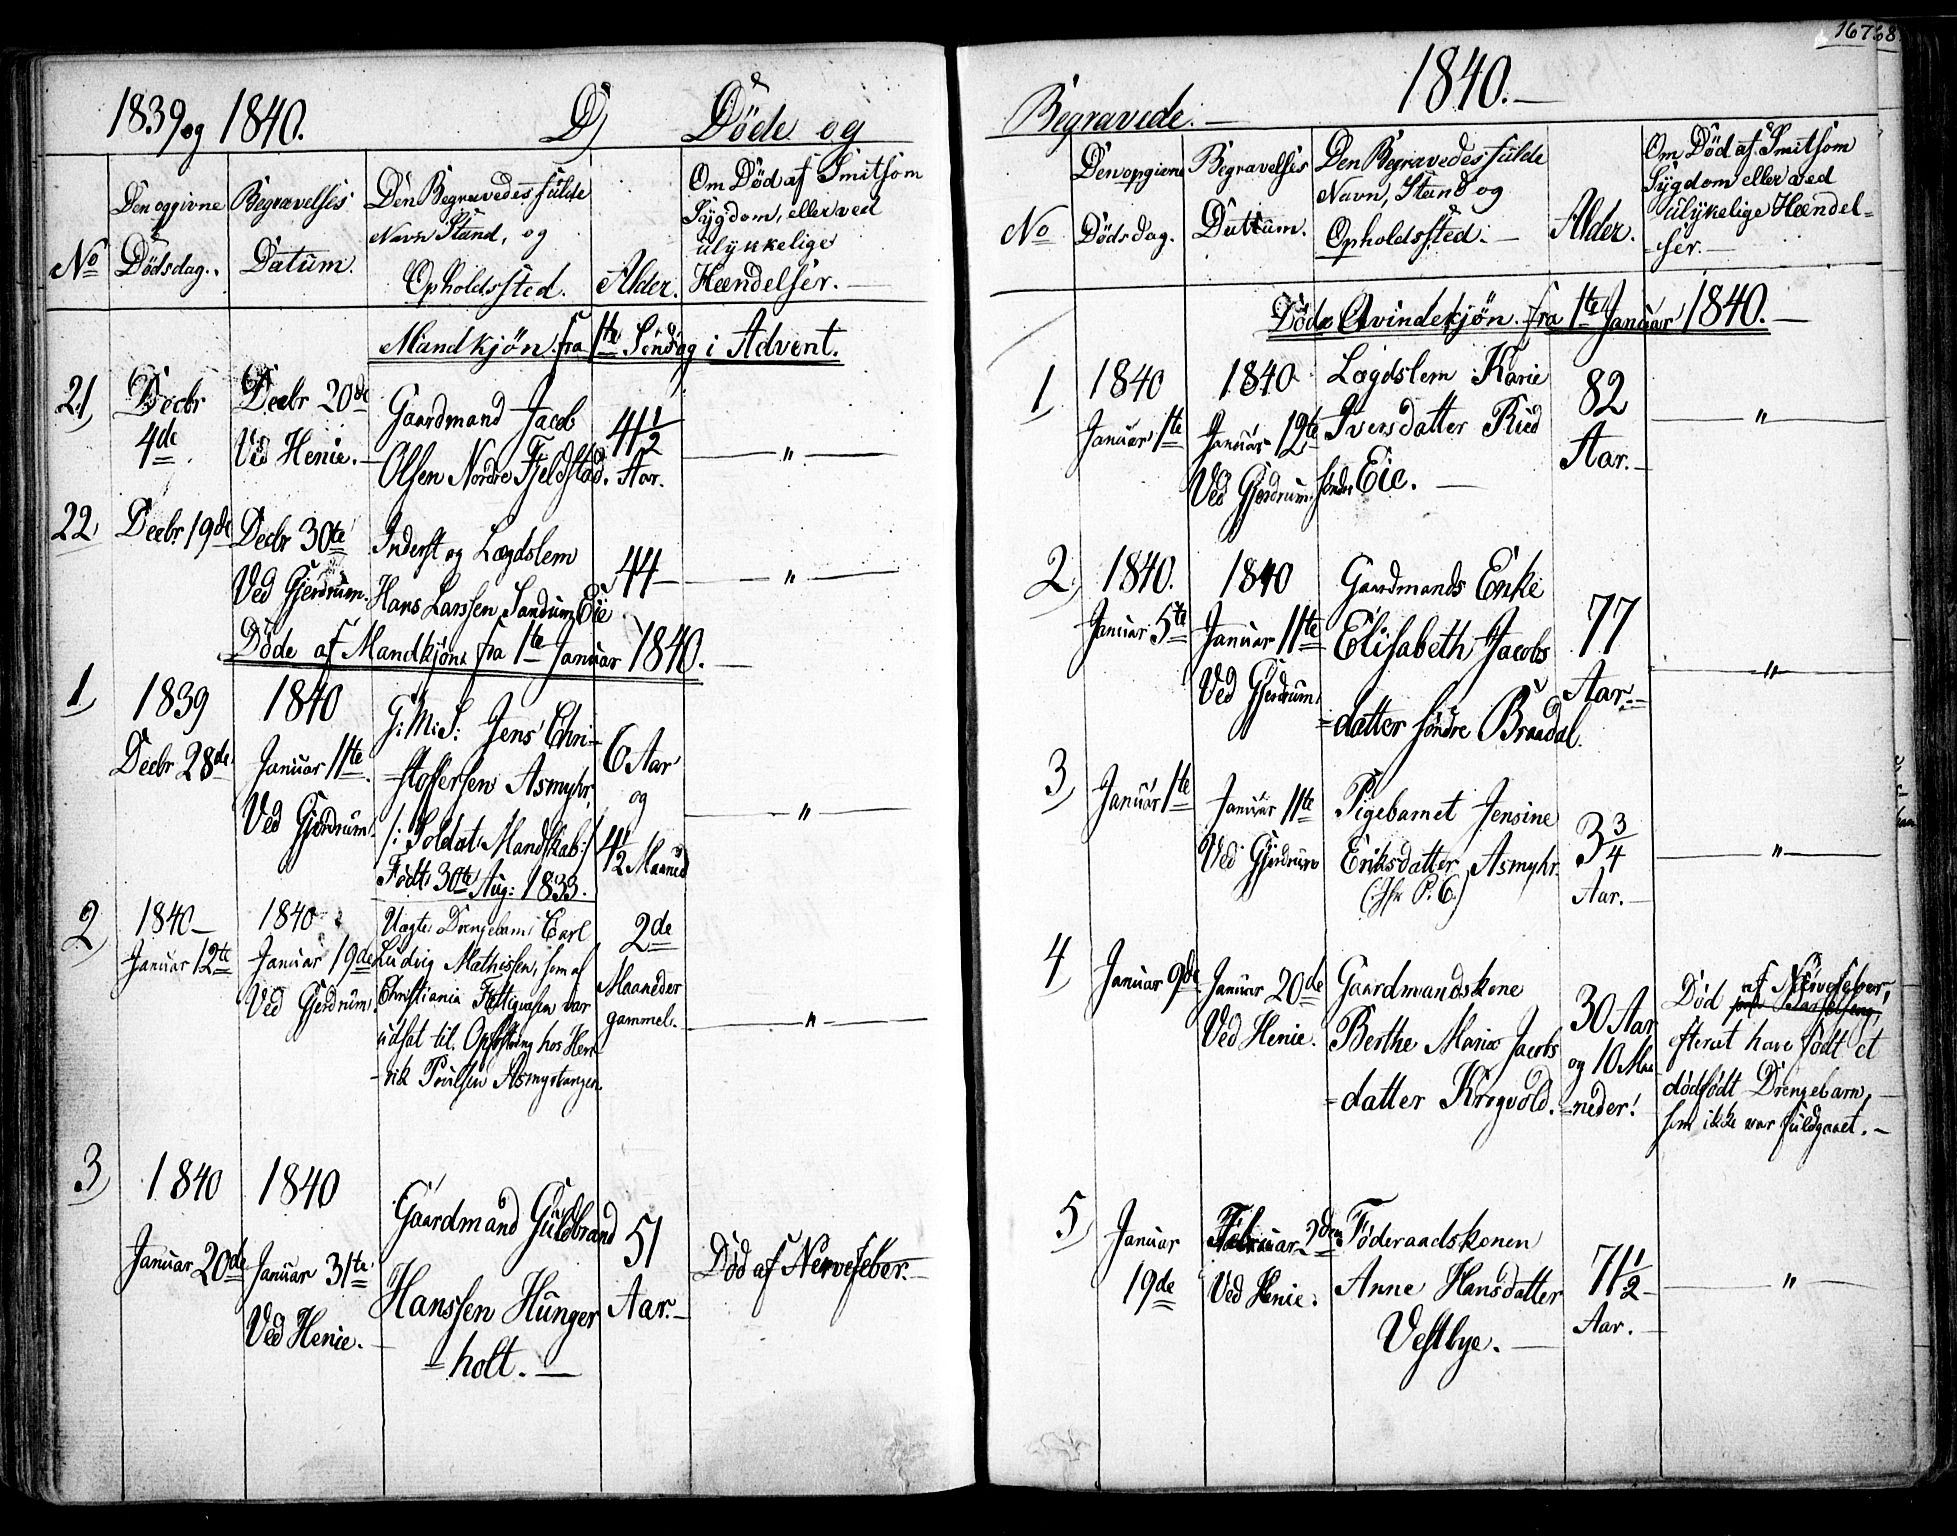 1839 og 1840. D) Döde og
No
Den opgivne
Dödsdag.
Begravelses
Datum.
Den Begravedes fulde
Navn Stand, og
Opholdssted.
Alder.
Om Död af Smitsom
Sygdom, eller ved
ulykkelige
Hændelser.
Mandkjön fra 1te Söndag i Advent.
21)
Decbr
4de
Decbr 20de
Ved Henie.
Gaardmand Jacob
Olsen Nordre Fjeldstad.
41 1/2
Aar.
"
22)
Decbr 19de
Decbr 30te
Ved Gjerdrum.
Inderst og Lægdslem
Hans Larssen Sandum Eie
44
"
Döde af Mandkjön fra 1te Januar 1840.
1)
1839
Decbr 28de
1840
Januar 11te
Ved Gjerdrum.
G: M: S: Jens Chri-
-stoffersen Asmyhr
/: Soldat: Mandskab:/
Födt: 30te Aug: 1833.
6 Aar
og
4 1/2 Maaned
"
2)
1840
Januar 12te
1840
Januar 19de
Ved Gjerdrum.
Uægte Drengebarn Carl
Ludvig Mathissen, som af
Christiania var
udsat til Opfostring hos Hen-
-rik Poulsen Asmystangen.
2de
Maaneder
gammel.
"
3)
1840
Januar 20de
1840
Januar 31te
Ved Henie.
Gaardmand Guldbrand
Hanssen Hunger
=holt.
51
Aar.
Död af Nervefeber.
16768
Begravede. 1840.
No
Den opgivne
Dödsdag.
Begravelses
Datum.
Den Begravedes fulde
Navn, Stand og
Opholdssted.
Alder.
Om Död af Smitsom
Sygdom eller ved
ulykelige Hændel=
=ser.
Döde Qvindekjön fra 1te Januar 1840.
1)
1840
Januar 1te
1840
Januar 12te
Ved Gjerdrum.
Lægdslem Karie
Iversdatter Rud
söndre Eie.
82
Aar.
"
2)
1840.
Januar 5te
1840
Januar 11te
Ved Gjerdrum.
Gaardmands Enke
Elisabeth Jacobs
=datter söndre Braadal.
77
Aar.
"
3)
Januar 1te
Januar 11te
Ved Gjerdrum
Pigebarnet Jensine
Eriksdatter Asmyhr.
(Jfr P. 6.)
3 3/4
Aar.
"
4)
Januar 9de
Januar 20de
Ved Henie.
Gaardmandskone
Berthe Marie Jacobs
=datter Krogvold.
30 Aar
og 10 Maa-
=neder!
Död af Nervefeber,
efterat have födt et
dödfödt Drengebarn,
som ikke var fuldgaaet.
5)
Januar
19de
Februar 2den
Ved Henie.
Föderaadskonen
Anne Hansdatter
Vestbye.
71 1/2
Aar.
"